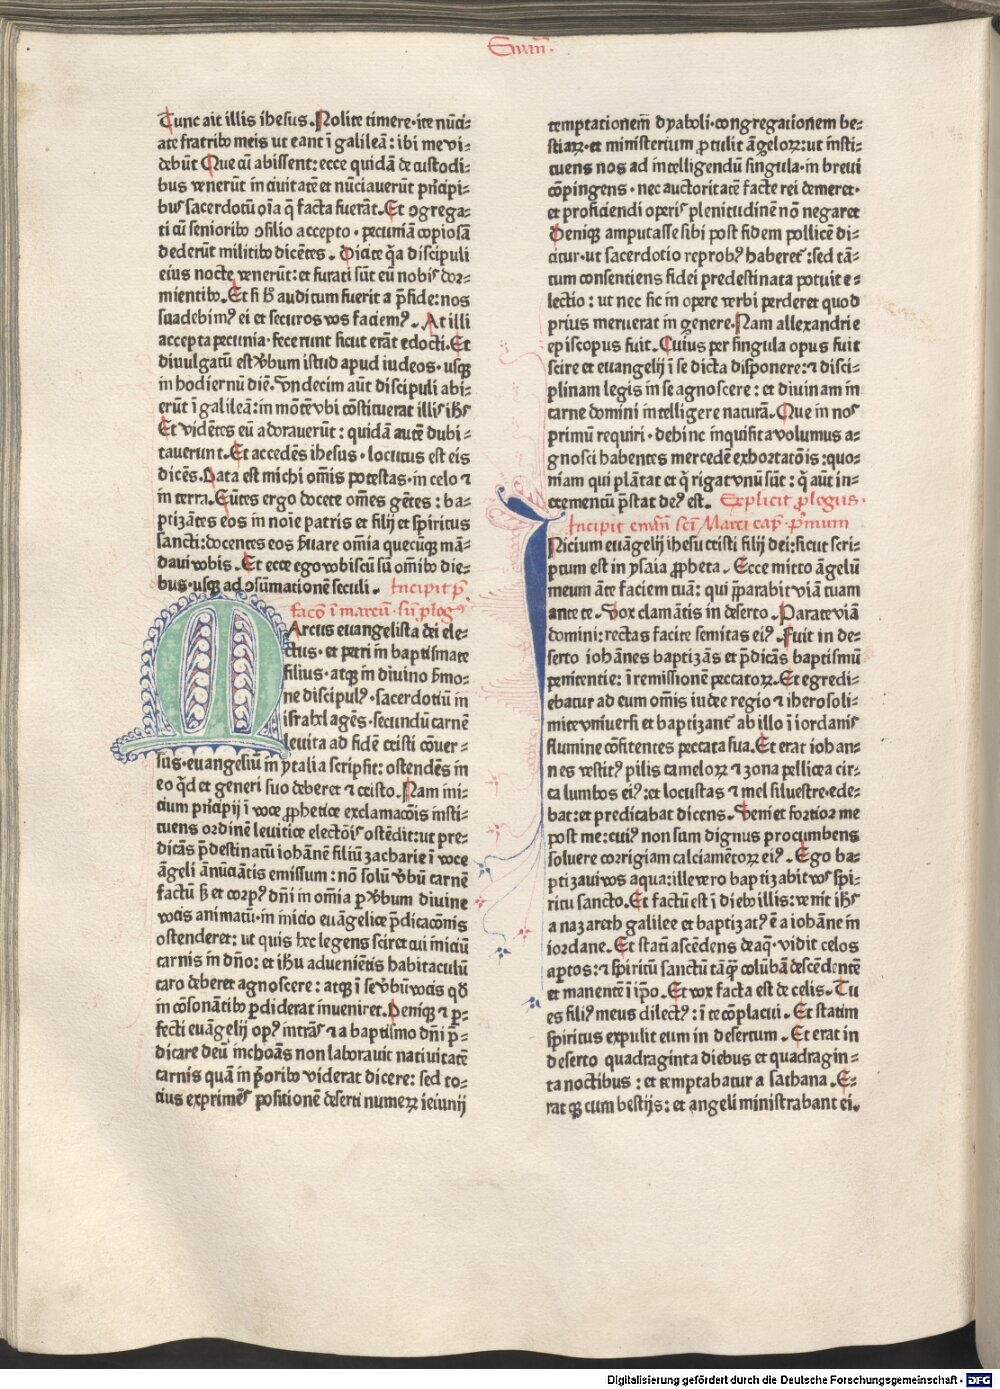 Ewan̄.
Tunc ait illis ihesus. Nolite timere · ite nūci-
ate fratribꝰ meis ut eant ī galileā : ibi me vi-
debūt Que cū abissent : ecce quidā de custodi-
bus venerūt in civitatē et nūciaverūt prīcipi-
bus sacerdotū oīa q̄ facta fuerāt. Et ↄgrega-
ti cū senioribꝰ ↄsilio accepto · pecuniā copiosā
dederūt militibꝰ dicētes. Dicite q̄a discipuli
eius nocte venerūt : et furati sūt eū nobis dor-
mientibꝰ. Et si h̄ auditum fuerit a p̄side : nos
suadebimꝰ ei et securos vos faciemꝰ. At illi
accepta pecunia · fecerunt sicut erāt edocti. Et
divulgatū est v̄bum istud apud iudeos · usqꝫ
in hodiernū diē. Undecim aūt discipuli abi-
erūt ī galileā : in mōtē ubi cōstituerat illis ihs̄
Et vidētes eū adoraverūt : quidā autē dubi-
taverunt. Et accedēs ihesus · locutus est eis
dicēs. Data est michi om̄is potestas · in celo ⁊
in terra. Eūtes ergo docete om̄es gētes : ba-
ptizātes eos in noīe patris et filij et spiritus
sancti : docentes eos ẜvare om̄ia quecūqꝫ mā-
davi vobis. Et ecce ego vobiscū sū om̄ibꝰ die-
bus · usqꝫ ad ↄsūmationē seculi. Incipit p̄-
facō ī marcū · siī plogꝰ
Marcus euangelista dei ele-
ctus · et petri in baptismate
filius · atqꝫ in divino ẜmo-
ne discipulꝰ · sacerdotiū in
israhel agēs · secundū carnē
levita ad fidē cristi cōver-
sus · evangeliū in ytalia scripsit : ostendēs in
eo q̄d et generi suo deberet ⁊ cristo. Nam ini-
cium prīcipij ī voce ꝓphetice exclamacōis īsti-
tuens ordinē levitice electōis ostēdit : ut pre-
dicās p̄destinatū iohānē filiū zacharie ī voce
āgeli ānūciātis emissum : nō solū v̄bū carnē
factū ẜ et corpꝰ dn̄i in om̄ia ꝑ v̄bum divine
vocis animatū · in inicio evāgelice p̄dicacōnis
ostenderet : ut quis hec legens sciret cui iniciū
carnis in dn̄o : et ihū adveniētis habitaculū
caro deberet agnoscere : atqꝫ ī se v̄bū vocis qd̄
in cōsonātibꝰ ꝑdiderat inveniret. Deniqꝫ ⁊ ꝑ-
fecti evāgelij opꝰ intrās ⁊ a baptismo dn̄i p̄-
dicare deū inchoās non laboravit nativitatē
carnis quā in p̄oribꝰ viderat dicere : sed to-
cius exprimēs positionē deserti numerꝝ ieiunij
temptationem dyaboli · congregationem be-
stiarꝝ · et ministerium ꝓtulit āgelorꝝ : ut īsti-
tuens nos ad intelligendū singula · in brevi
cōpingens · nec auctoritatē facte rei demeret ·
et proficiendi operis plenitudinē nō negaret
Deniqꝫ amputasse sibi post fidem pollicē di-
citur · ut sacerdotio reprobꝰ haberetᷣ : sed tā-
tum consentiens fidei predestinata potuit e-
lectio : ut nec sic in opere verbi perderet quod
prius meruerat in genere. Nam allexandrie
episcopus fuit. Cuius per singula opus fuit
scire et evangelij ī se dicta disponere : ⁊ disci-
plinam legis in se agnoscere : et divinam in
carne domini intelligere naturā. Que in nos
primū requiri · dehinc inquisita volumus a-
gnosci habentes mercedē exhortatōis : quo-
niam qui plātat et q̄ rigat unū sūt : q̄ aūt in-
crementū p̄stat deꝰ est. Explicit plogus.
Incipit ewan̄ scī Marci cap̄ · p̄mum
Inicium euāgelij ihesu cristi filij dei : sicut scri-
ptum est in ysaia ꝓpheta. Ecce mitto āgelū
meum āte faciem tuā : qui p̄parabit viā tuam
ante te. Vox clamātis in deserto. Parate viā
domini : rectas facite semitas eiꝰ. Fuit in de-
serto iohānes baptizās et p̄dicās baptismū
penitentie : ī remissionē peccatorꝝ. Et egredi-
ebatur ad eum om̄is iudee regio ⁊ iherosoli-
mite universi et baptizantᷣ ab illo ī iordanis
flumine cōfitentes peccata sua. Et erat iohan-
nes vestitꝰ pilis camelorꝝ ⁊ zona pellicea cir-
ca lumbos eiꝰ : et locustas ⁊ mel silvestre ede-
bat : et predicabat dicens. Veniet fortior me
post me : cuiꝰ non sum dignus procumbens
solvere corrigiam calciamētorꝝ eiꝰ. Ego ba-
ptizavi vos aqua : ille vero baptizabit vos spi-
ritu sancto. Et factū est ī diebꝰ illis : venit ihs̄
a nazareth galilee et baptizatꝰ ē a iohāne in
iordane. Et statī ascēdens de aq̄ · vidit celos
aꝑtos : ⁊ spiritū sanctū tāq̄ colūbā descēdentē
et manentē ī ip̄o. Et vox facta est de celis. Tu
es filiꝰ meus dilectꝰ : ī te cōplacui. Et statim
spiritus expulit eum in desertum. Et erat in
deserto quadraginta diebus et quadragin-
ta noctibus : et temptabatur a sathana. E-
ratqꝫ cum bestijs : et angeli ministrabant ei.
Digitalisierung gefördert durch die Deutsche Forschungsgemeinschaft - DFG